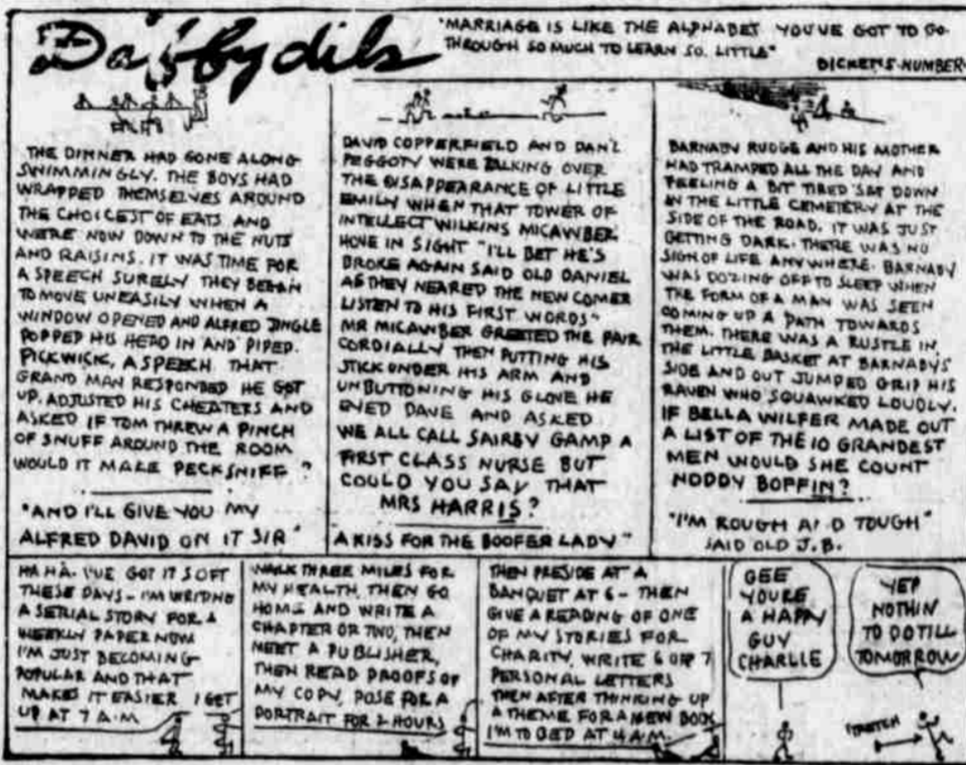 Daffydils
"MARRIAGE IS LIKE THE ALPHABET YOU'VE GOT TO GO
THROUGH SO MUCH TO LEARN SO LITTLE"
DICKENS NUMBER
THE DINNER HAD GONE ALONG
SWIMMINGLY. THE BOYS HAD
WRAPPED THEMSELVES AROUND
THE CHOICEST OF EATS AND
WERE NOW DOWN TO THE NUTS
AND RAISINS. IT WAS TIME FOR
A SPEECH SURELY THEY BEGAN
TO MOVE UNEASILY WHEN A
WINDOW OPENED AND ALFRED JINGLE
POPPED HIS HEAD IN AND PIPED.
PICKWICK, A SPEECH THAT
GRAND MAN RESPONDED HE GOT
UP. ADJUSTED HIS CHEATERS AND
ASKED IF TOM THREW A PINCH
OF SNUFF AROUND THE ROOM
WOULD IT MAKE PECKSNIFF?
"AND I'LL GIVE YOU MY
ALFRED DAVID ON IT SIR"
DAVID COPPERFIELD AND DAN'L
PEGGOTY WERE TALKING OVER
THE DISAPPEARANCE OF LITTLE
EMILY WHEN THAT TOWER OF
INTELLECT WILKINS MICAWBER
HOVE IN SIGHT "I'LL BET HE'S
BROKE AGAIN SAID OLD DANIEL
AS THEY NEARED THE NEW COMER
LISTEN TO HIS FIRST WORDS"
MR MICAWBER GREETED THE PAIR
CORDIALLY THEN PUTTING HIS
STICK UNDER HIS ARM AND
UNBUTTONING HIS GLOVE HE
EYED DAVE AND ASKED
WE ALL CALL SAIREY GAMP A
FIRST CLASS NURSE BUT
COULD YOU SAY THAT
MRS HARRIS?
A KISS FOR THE BOOFER LADY"
BARNABY RUDGE AND HIS MOTHER
HAD TRAMPED ALL THE DAY AND
FEELING A BIT TIRED SAT DOWN
IN THE LITTLE CEMETERY AT THE
SIDE OF THE ROAD. IT WAS JUST
GETTING DARK. THERE WAS NO
SIGN OF LIFE ANYWHERE. BARNABY
WAS DOZING OFF TO SLEEP WHEN
THE FORM OF A MAN WAS SEEN
COMING UP A PATH TOWARDS
THEM. THERE WAS A RUSTLE IN
THE LITTLE BASKET AT BARNABY'S
SIDE AND OUT JUMPED GRIP HIS
RAVEN WHO SQUAWKED LOUDLY.
IF BELLA WILFER MADE OUT
A LIST OF THE 10 GRANDEST
MEN WOULD SHE COUNT
NODDY BOFFIN?
"I'M ROUGH AND TOUGH"
SAID OLD J.B.
HA HA. I'VE GOT IT SOFT
THESE DAYS - I'M WRITING
A SERIAL STORY FOR A
WEEKLY PAPER NOW
I'M JUST BECOMING
POPULAR AND THAT
MAKES IT EASIER I GET
UP AT 7 A.M.
WALK THREE MILES FOR
MY HEALTH, THEN GO
HOME AND WRITE A
CHAPTER OR TWO, THEN
MEET A PUBLISHER,
THEN READ PROOFS OF
MY COPY, POSE FOR A
PORTRAIT FOR 2 HOURS
THEN PRESIDE AT A
BANQUET AT 6 - THEN
GIVE A READING OF ONE
OF MY STORIES FOR
CHARITY, WRITE 6 OR 7
PERSONAL LETTERS
THEN AFTER THINKING UP
A THEME FOR A NEW BOOK
I'M TO BED AT 4 A.M.
GEE
YOU'RE
A HAPPY
GUY
CHARLIE
YEP
NOTHIN
TO DO TILL
TOMORROW
STRETCH